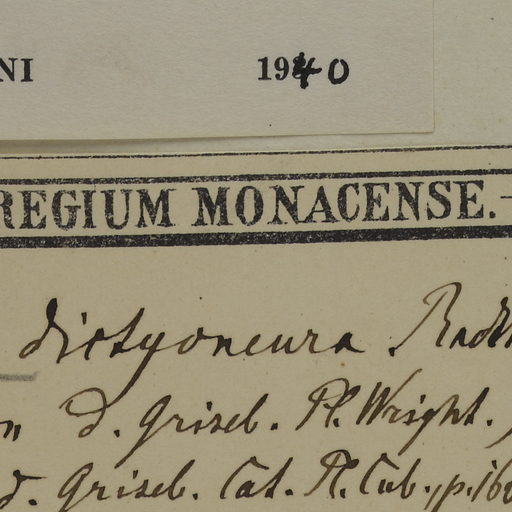 NI 1940
REGIUM MONACENSE.
dictyoneura Radlk
n D. Griseb. Pl. Wright.
d. Griseb. Cat. Pl. Cub., p. 160